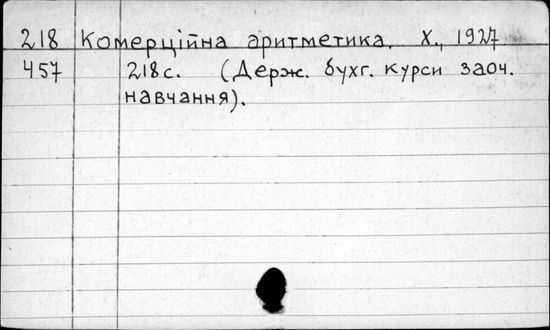 218 Комерційна аритметика. Х., 1927
457 218с. (Держ. бухг. курси заоч.
навчання).